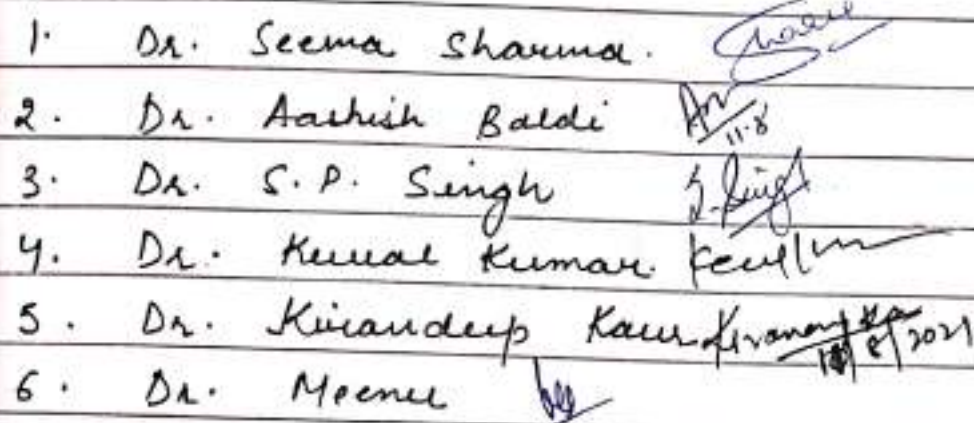 1. Dr. Seema Sharma.
2. Dr. Aashish Baldi 11.8
3. Dr. S.P. Singh S. Singh
4. Dr. Kewal Kumar.
5. Dr. Kirandeep Kaur 11/8/2021
6. Dr. Meenu